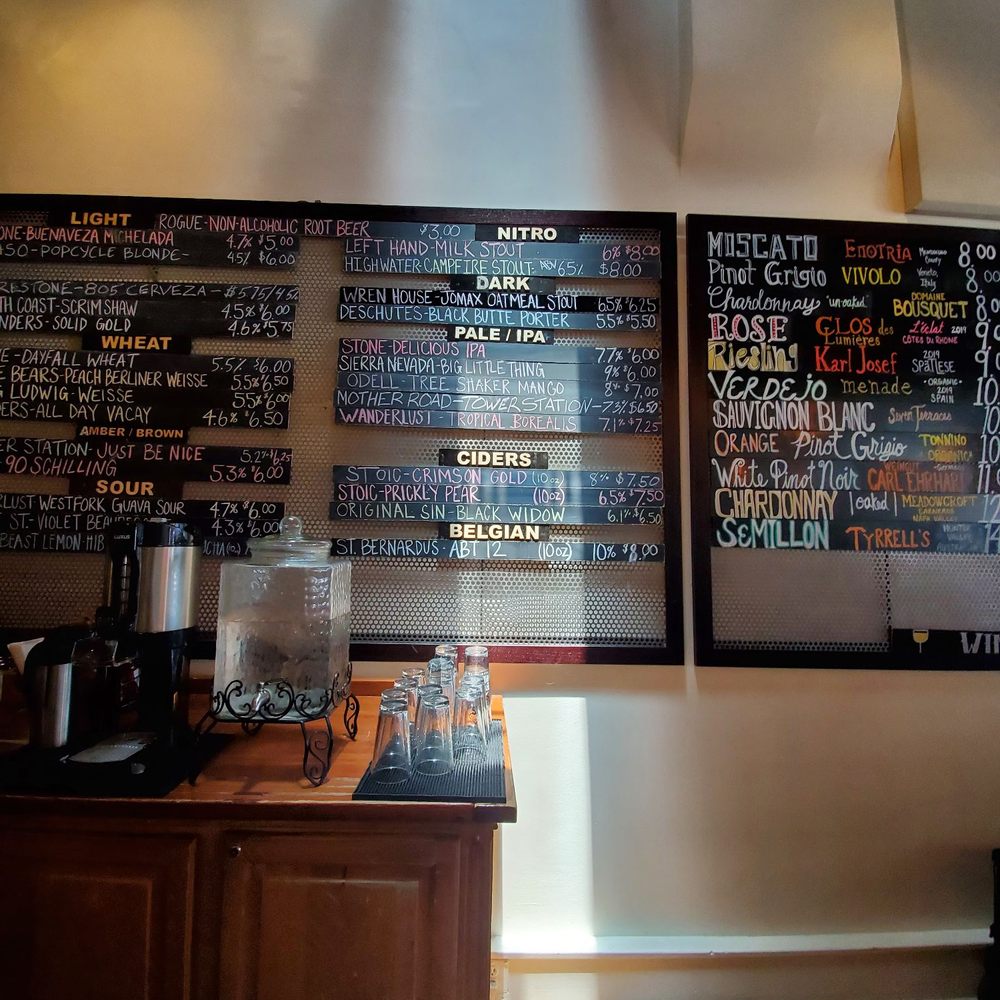 LIGHT
ROGUE-NON-ALCOHOLIC ROOT BEER $3.00
ONE-BUENAVEZA MICHELADA 4.7% $5.00
ASO-POPCYCLE BLONDE- 4.5% $6.00
RESTONE-805 CERVEZA-$5.75/4.5%
TH COAST-SCRIMSHAW 4.5% $6.00
NDERS-SOLID GOLD 4.6% $5.75
WHEAT
E-DAYFALL WHEAT 5.5% $6.00
E BEARS-PEACH BERLINER WEISSE 5.5% $6.50
G LUDWIG-WEISSE 5% $6.00
DERS-ALL DAY VACAY 4.6% $6.50
AMBER / BROWN
ER STATION-JUST BE NICE 5.2% $6.25
90 SCHILLING 5.3% $6.00
SOUR
LUST WESTFORK GUAVA SOUR 4.7% $6.00
ST-VIOLET 4.3% $6.00
BEAST LEMON HIB
NITRO
LEFT HAND-MILK STOUT 6% $8.00
HIGHWATER-CAMPFIRE STOUT 6.5% $8.00
DARK
WREN HOUSE-JOMAX OATMEAL STOUT 6.5% $6.25
DESCHUTES-BLACK BUTTE PORTER 5.5% $5.50
PALE / IPA
STONE-DELICIOUS IPA 7.7% $6.00
SIERRA NEVADA-BIG LITTLE THING 9% $6.00
ODELL-TREE SHAKER MANGO 8% $7.00
MOTHER ROAD-TOWER STATION-7.3% $6.50
WANDERLUST-TROPICAL BOREALIS 7.1% $7.25
CIDERS
STOIC-CRIMSON GOLD (10oz) 8% $7.50
STOIC-PRICKLY PEAR (10oz) 6.5% $7.50
ORIGINAL SIN-BLACK WIDOW 6.1% $6.50
BELGIAN
ST. BERNARDUS-ABT 12 (10oz) 10% $8.00
MOSCATO ENOTRIA 8.00
Pinot Grigio VIVOLO Veneto, Italy 8
Chardonnay unoaked DOMAINE BOUSQUET 8
ROSE CLOS des Lumières L'éclat 2019 CÔTES DU RHONE 9
Riesling Karl Josef 2019 SPÄTLESE 9
VERDEJO menade ORGANIC 2019 SPAIN 10
SAUVIGNON BLANC Seven Terraces 10
ORANGE Pinot Grigio TONNINO 10
White Pinot Noir WEINGUT CARL EHRHARD 11
CHARDONNAY | oaked | MEADOWCROFT CARNEROS NAPA VALLEY 12
SEMILLON TYRRELL'S HUNTER VALLEY
WI